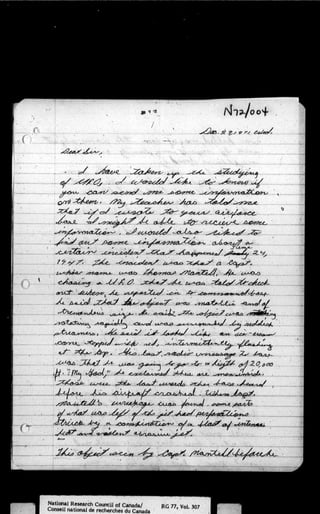 N72/004
Dear Sir,
I have taken up the studying
of UFO, I would like to know if
you can send me some information
on them. My teacher has told me
that if I wrote to your airforce
base I might be able to receive some
information. I would also liked to
find out some information about a
certain incident that happened June 24,
1947. The incident was that a Capt.
whose name was Thomas Mantell. He was
chasing a U.F.O. that he was told to check
out when, he reported in to command base
he said that the object was metallic and of
tremendous size. he said, the object was
rotating rapidly and was surrounded by reddish
streamers, He said it looked like, an ice-cream
cone, topped with red, intermittently flashing
at the top. His last radio message to base
was that he was going to go to a height of 20,000
ft. "My God," he exclaimed there are men inside.
Those were the last words the base heard
before his aircraft crashed. When Capt.
Mantell's wreckage was found, some parts
of what was left of the jet had perforations
Struck by a combination of a blast of intense
heat and violent
This object seen by Capt. Mantell before he
National Research Council of Canada/
Conseil national de recherches du Canada
RG 77, Vol. 307